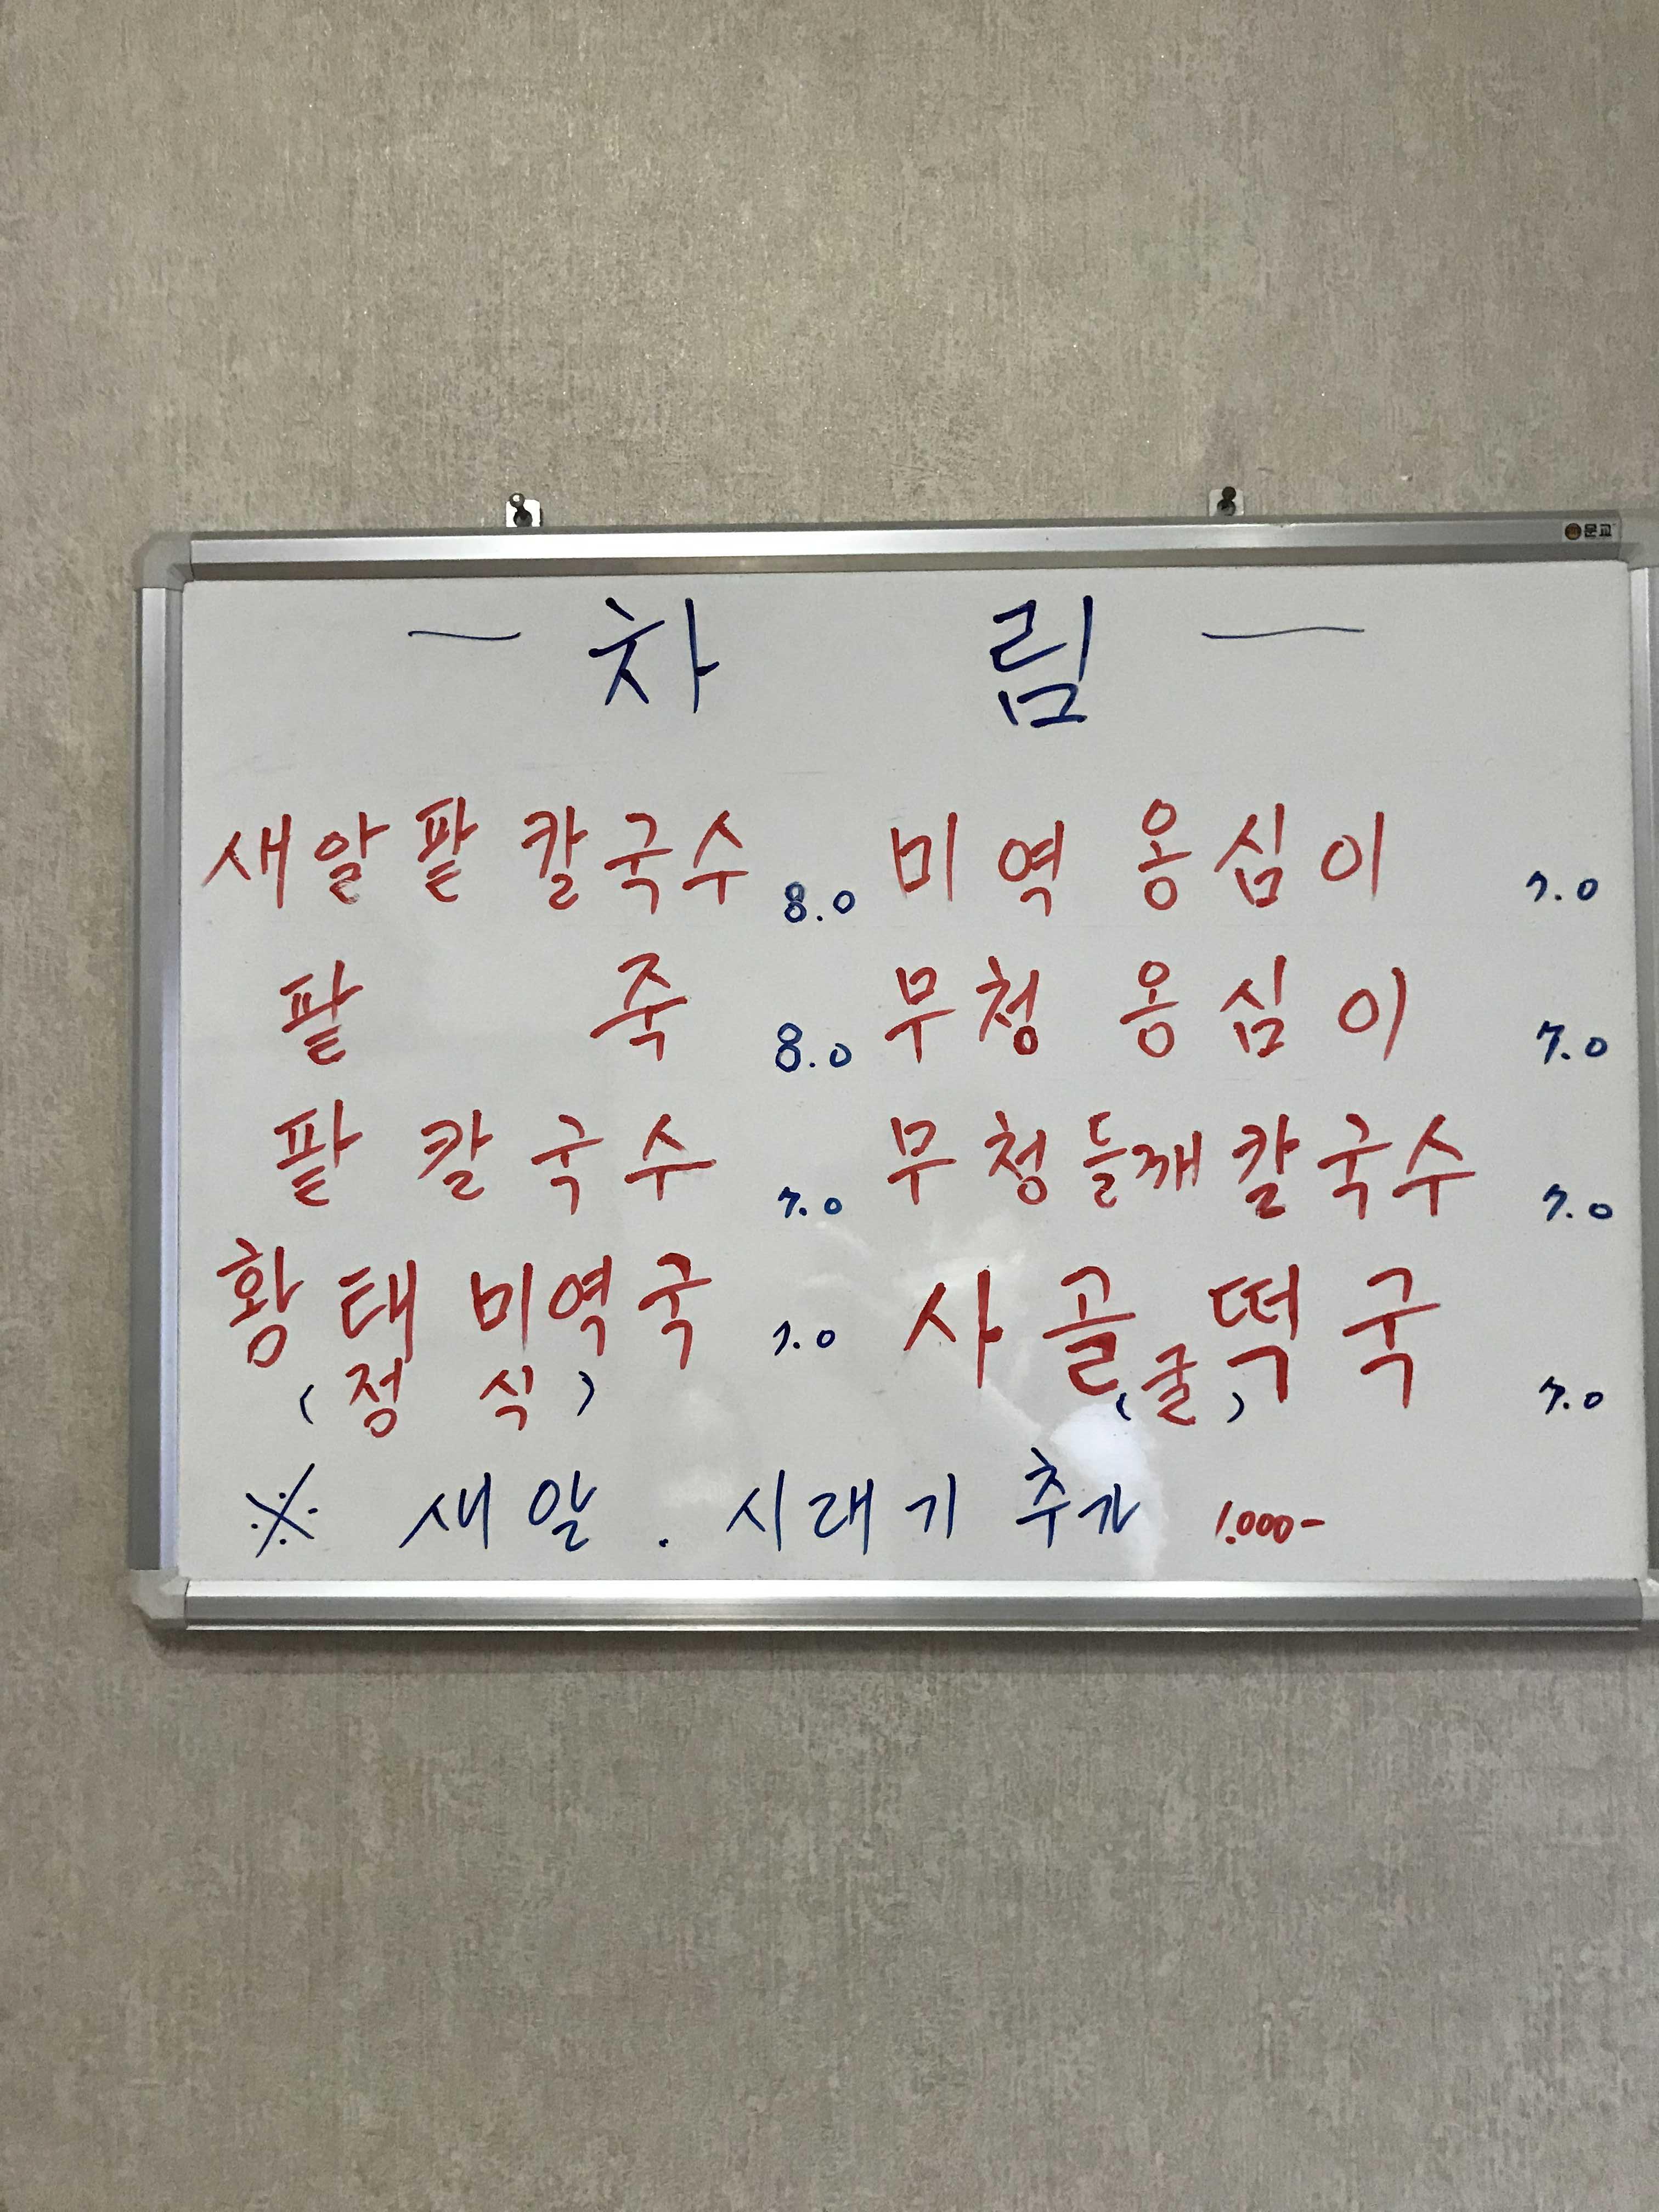 문교
- 차 림 -
새알팥 칼국수 8.0 미역 옹심이 7.0
팥 죽 8.0 무청 옹심이 7.0
팥 칼국수 7.0 무청들깨칼국수 7.0
황태 미역국 7.0 사골떡국 7.0
(정 식) (굴)
※ 새알 . 시래기 추가 1.000-